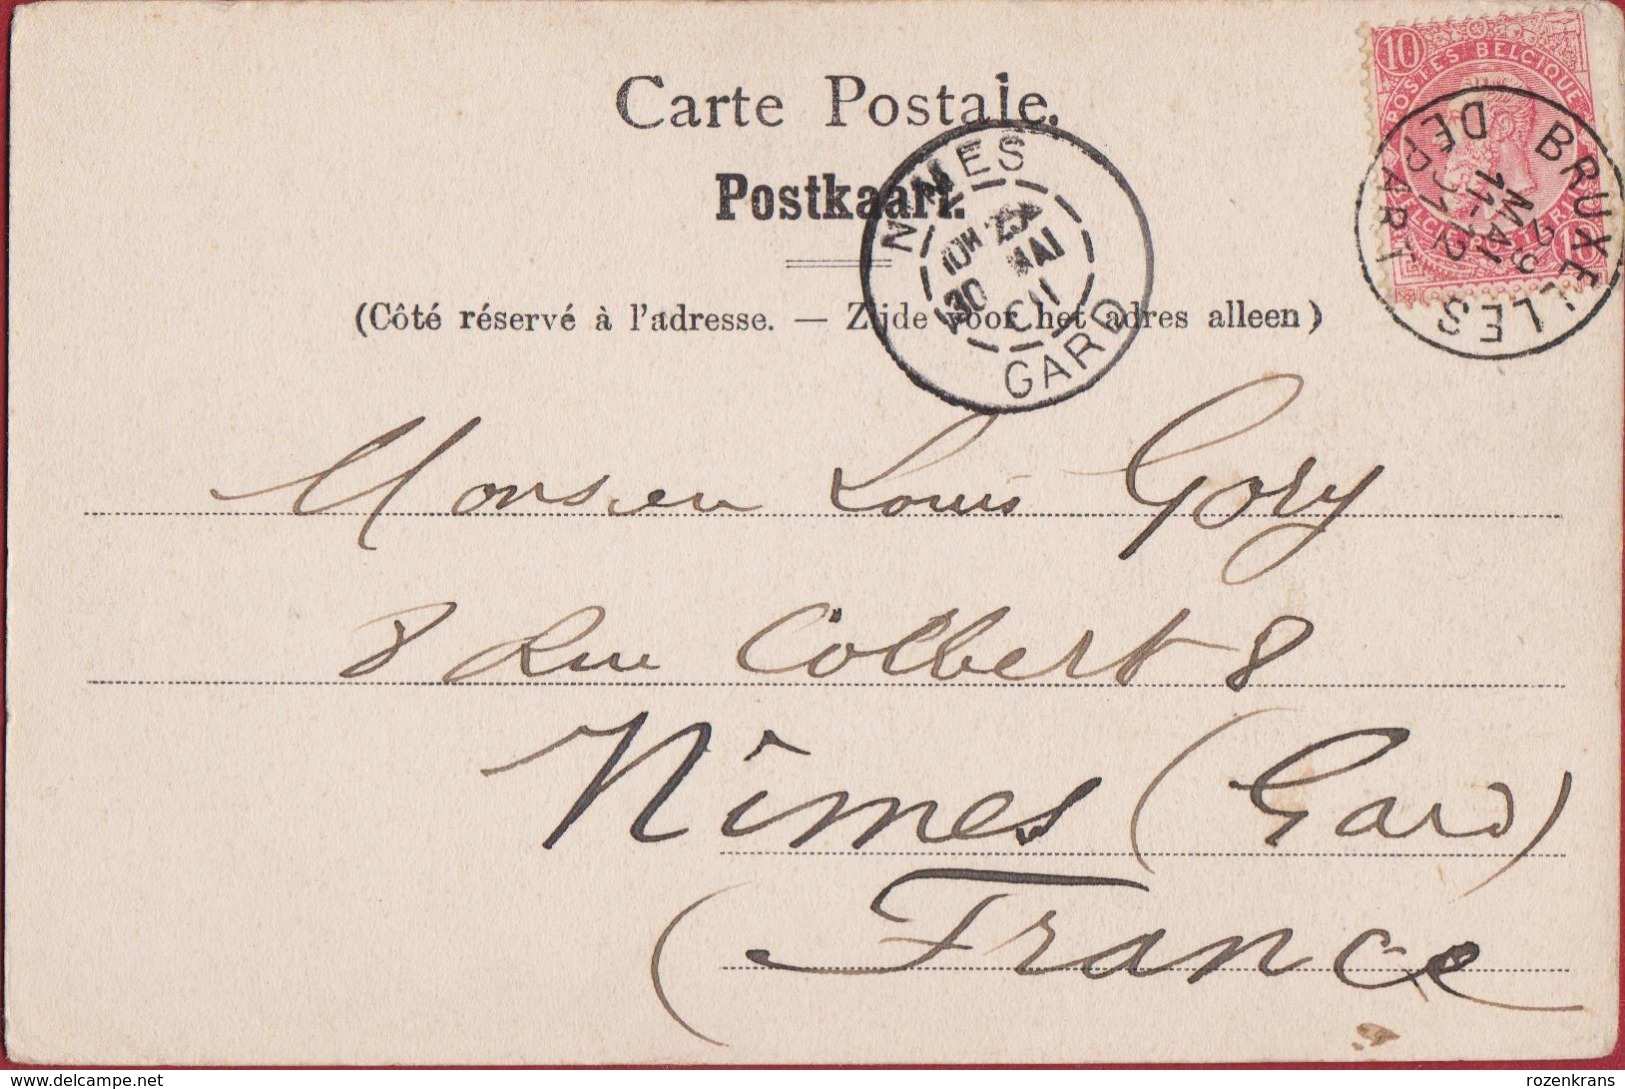 Carte Postale.
Postkaart.
(Côté réservé à l'adresse. — Zijde voor het adres alleen)
10
POSTES BELGIQUE
BRUXELLES
29
MAI
11-12
DEPART
NIMES
MAI
30
GARD
Monsieu Louis Gory
8 Rue Colbert 8
Nîmes (Gard)
(France
delcampe.net
rozenkrans